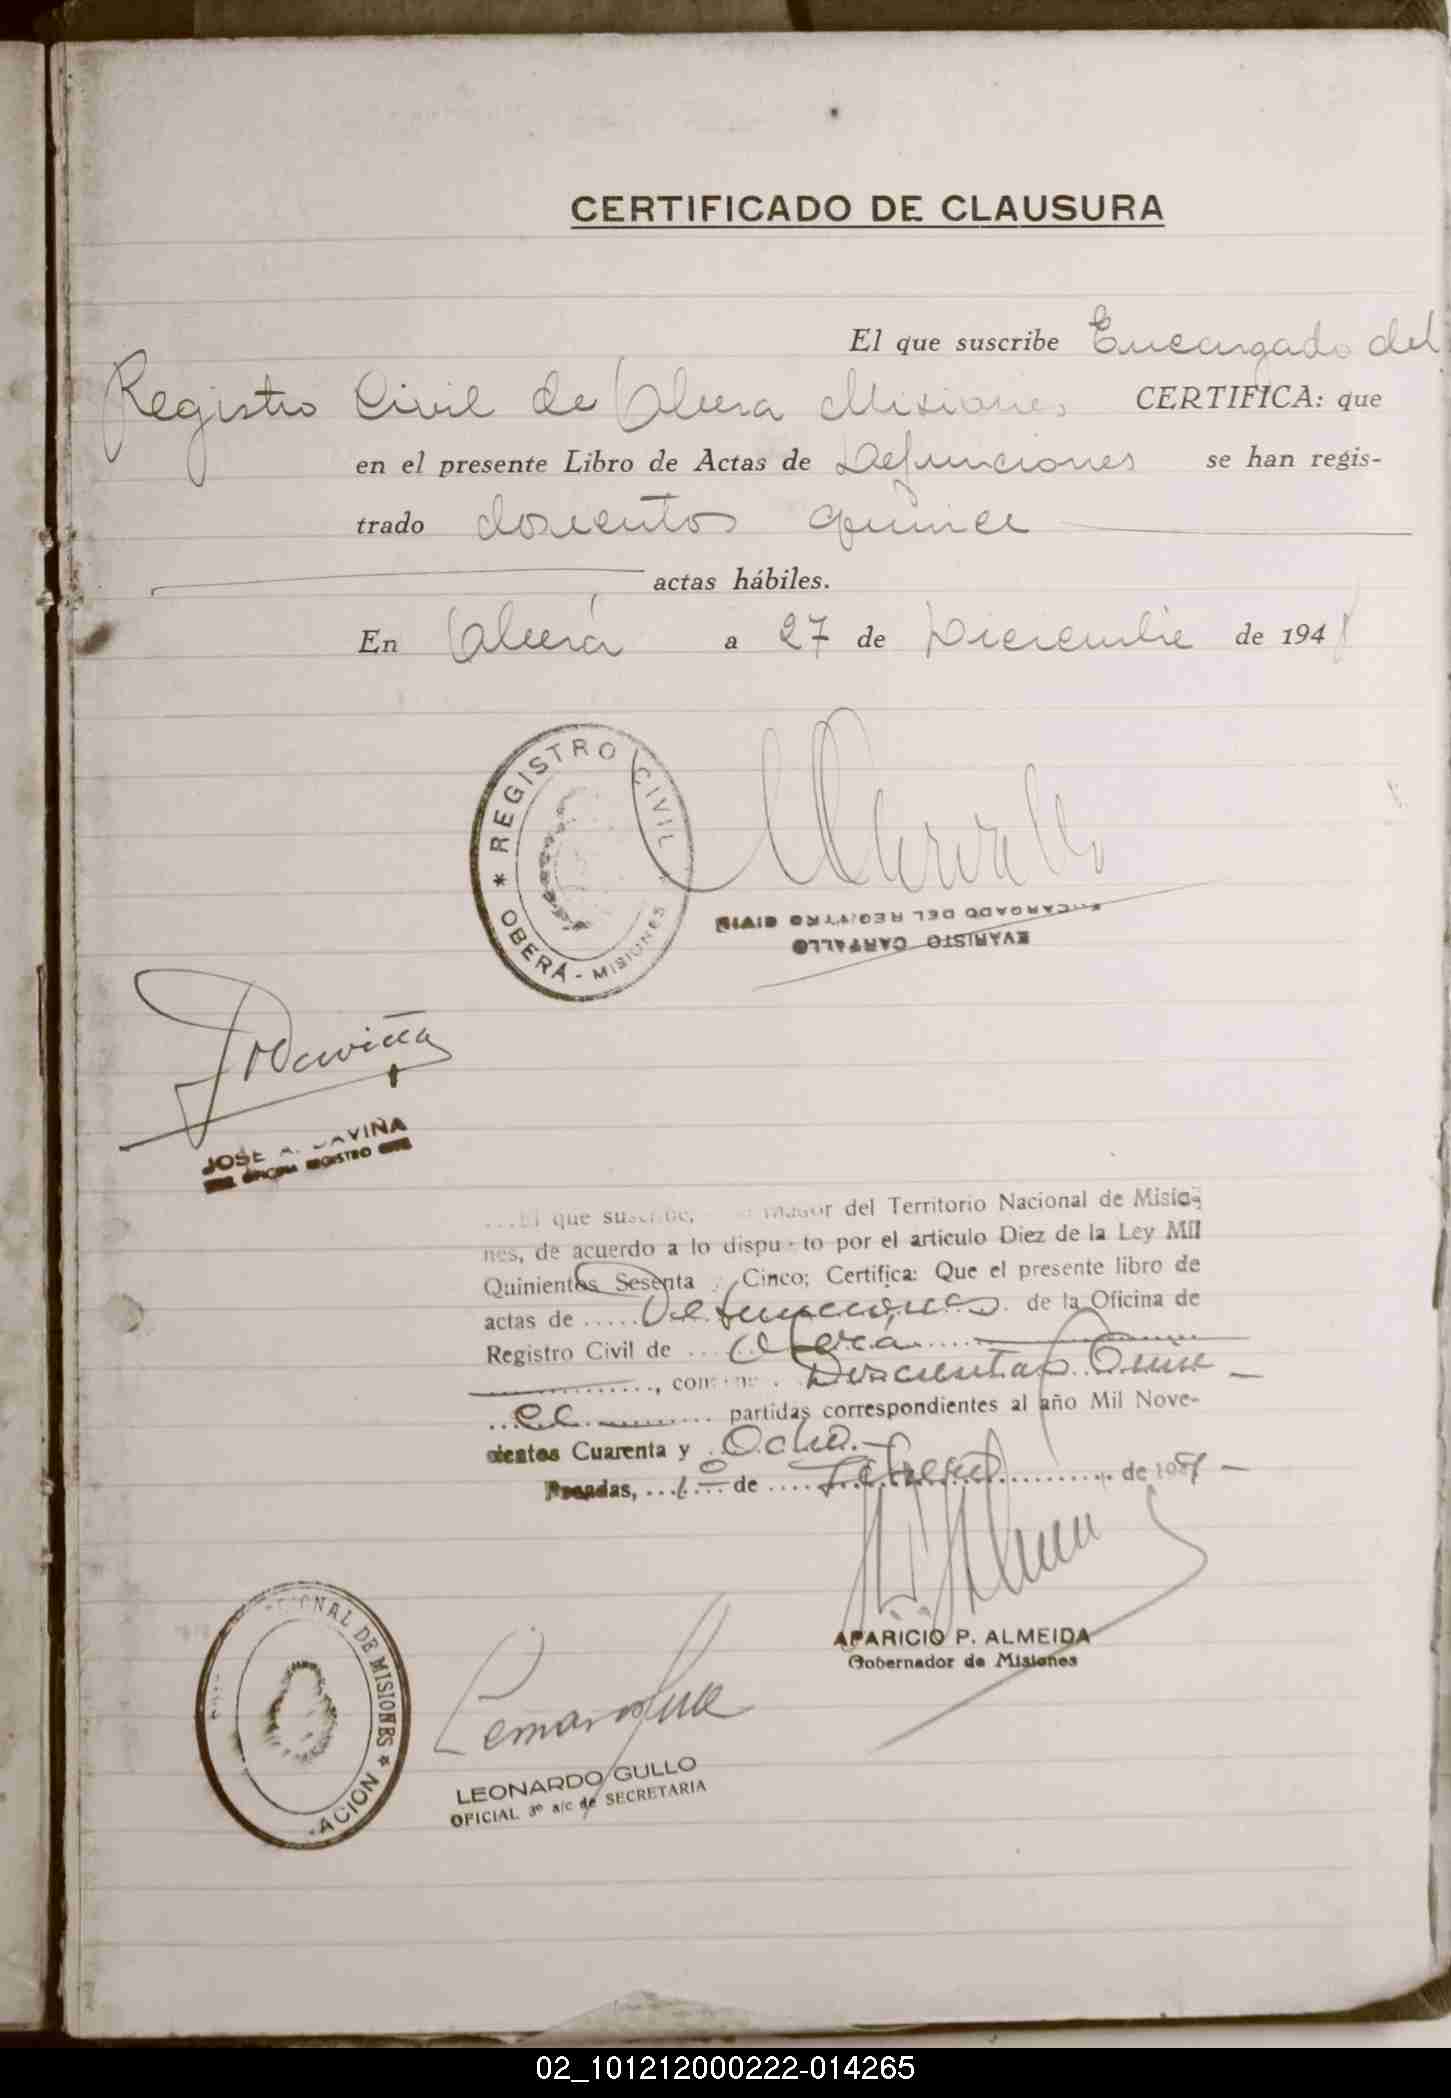 CERTIFICADO DE CLAUSURA
El que suscribe Encargado del
Registro Civil de Obera Misiones CERTIFICA: que
en el presente Libro de Actas de Defunciones se han regis-
trado doscientos quince
actas hábiles.
En Oberá a 27 de Diciembre de 194
REGISTRO CIVIL
* OBERÁ - MISIONES *
ENCARGADO DEL REGISTRO CIVIL
EVARISTO CARBALLO
JOSE A. DAVIÑA
OFICINA REGISTRO
El que suscribe, del Territorio Nacional de Misio-
nes, de acuerdo a lo dispuesto por el artículo Diez de la Ley Mil
Quinientos Sesenta y Cinco; Certifica: Que el presente libro de
actas de ..... Defunciones. de la Oficina de
Registro Civil de ... Oberá
............., Doscientas Quin
ce ......... partidas correspondientes al año Mil Nove-
cientos Cuarenta y Ocho.-
Posadas, ... 1º ... de .... Febrero ......... de 19
APARICIO P. ALMEIDA
Gobernador de Misiones
NAL DE MISIONES *
ACION
LEONARDO GULLO
OFICIAL 3º a/c de SECRETARIA
02_101212000222-014265